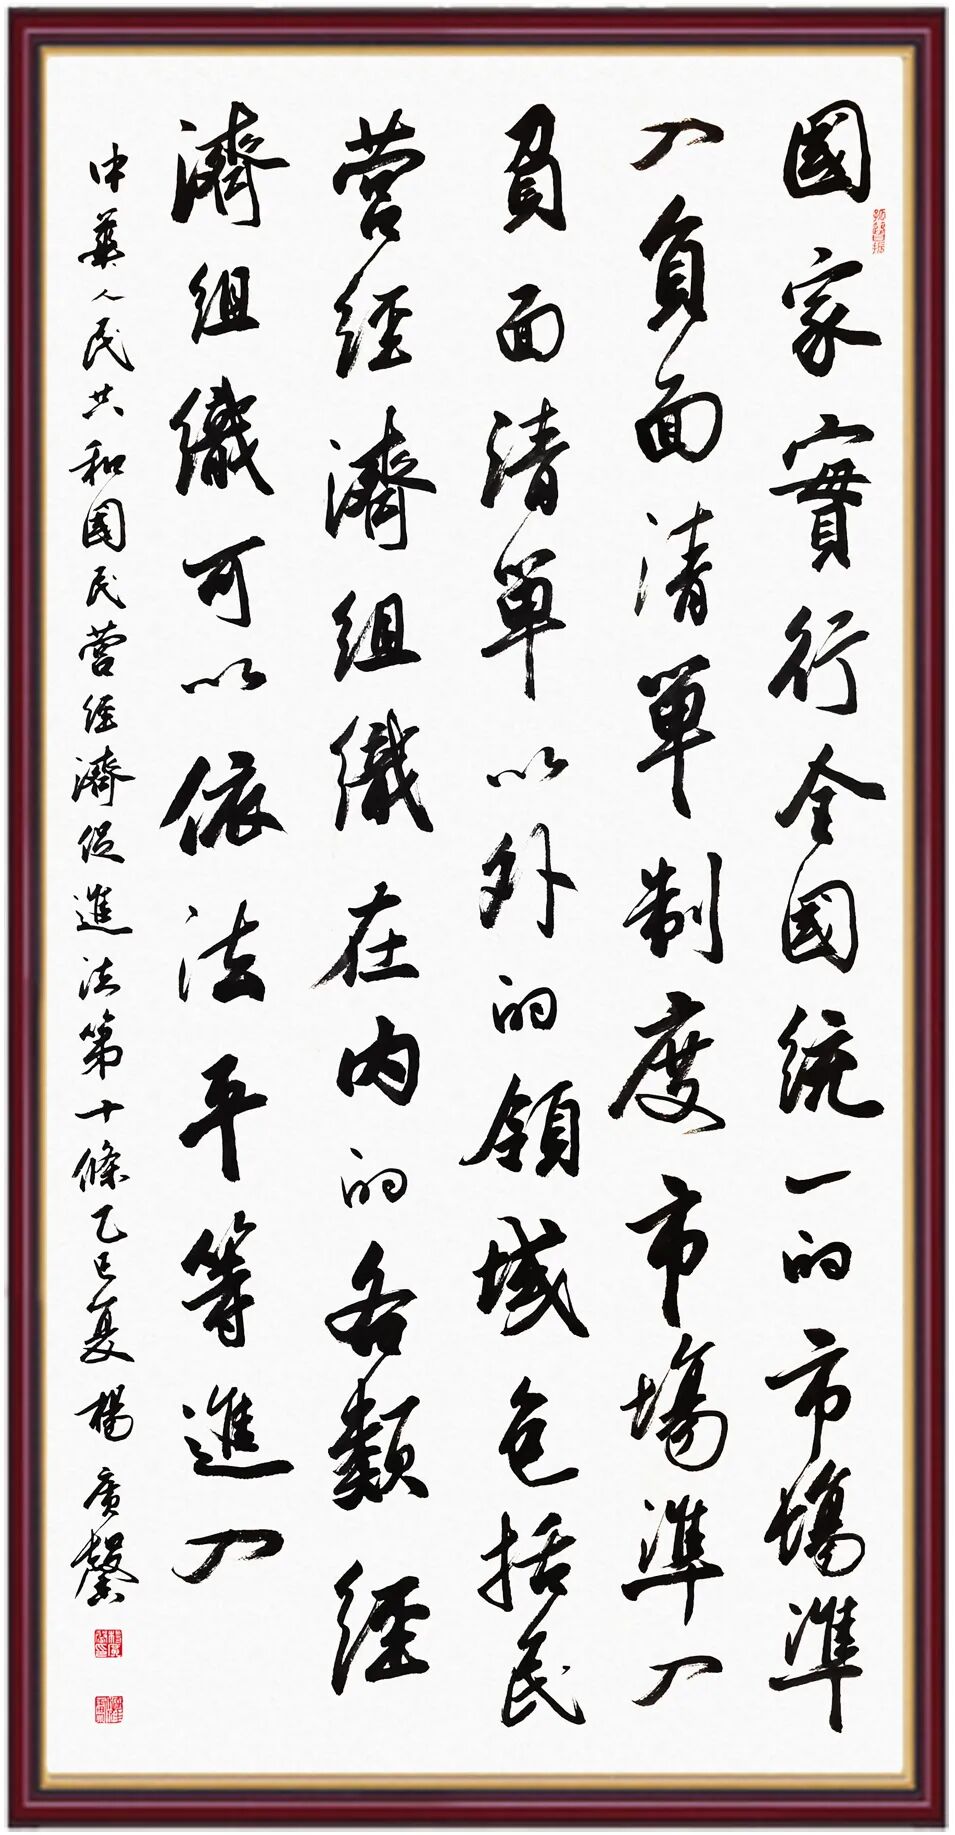 國家實行全國統一的市場準
入負面清單制度市場準入
負面清單以外的領域包括民
營經濟組織在内的各類經
濟組織可以依法平等進入
中華人民共和國民營經濟促進法第十條乙巳夏楊廣馨